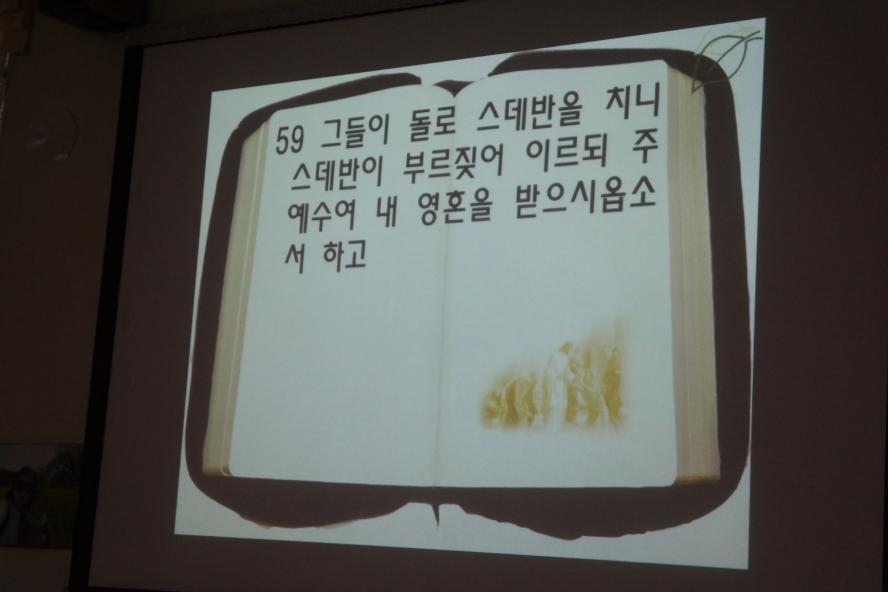 59 그들이 돌로 스데반을 치니
스데반이 부르짖어 이르되 주
예수여 내 영혼을 받으시옵소
서 하고